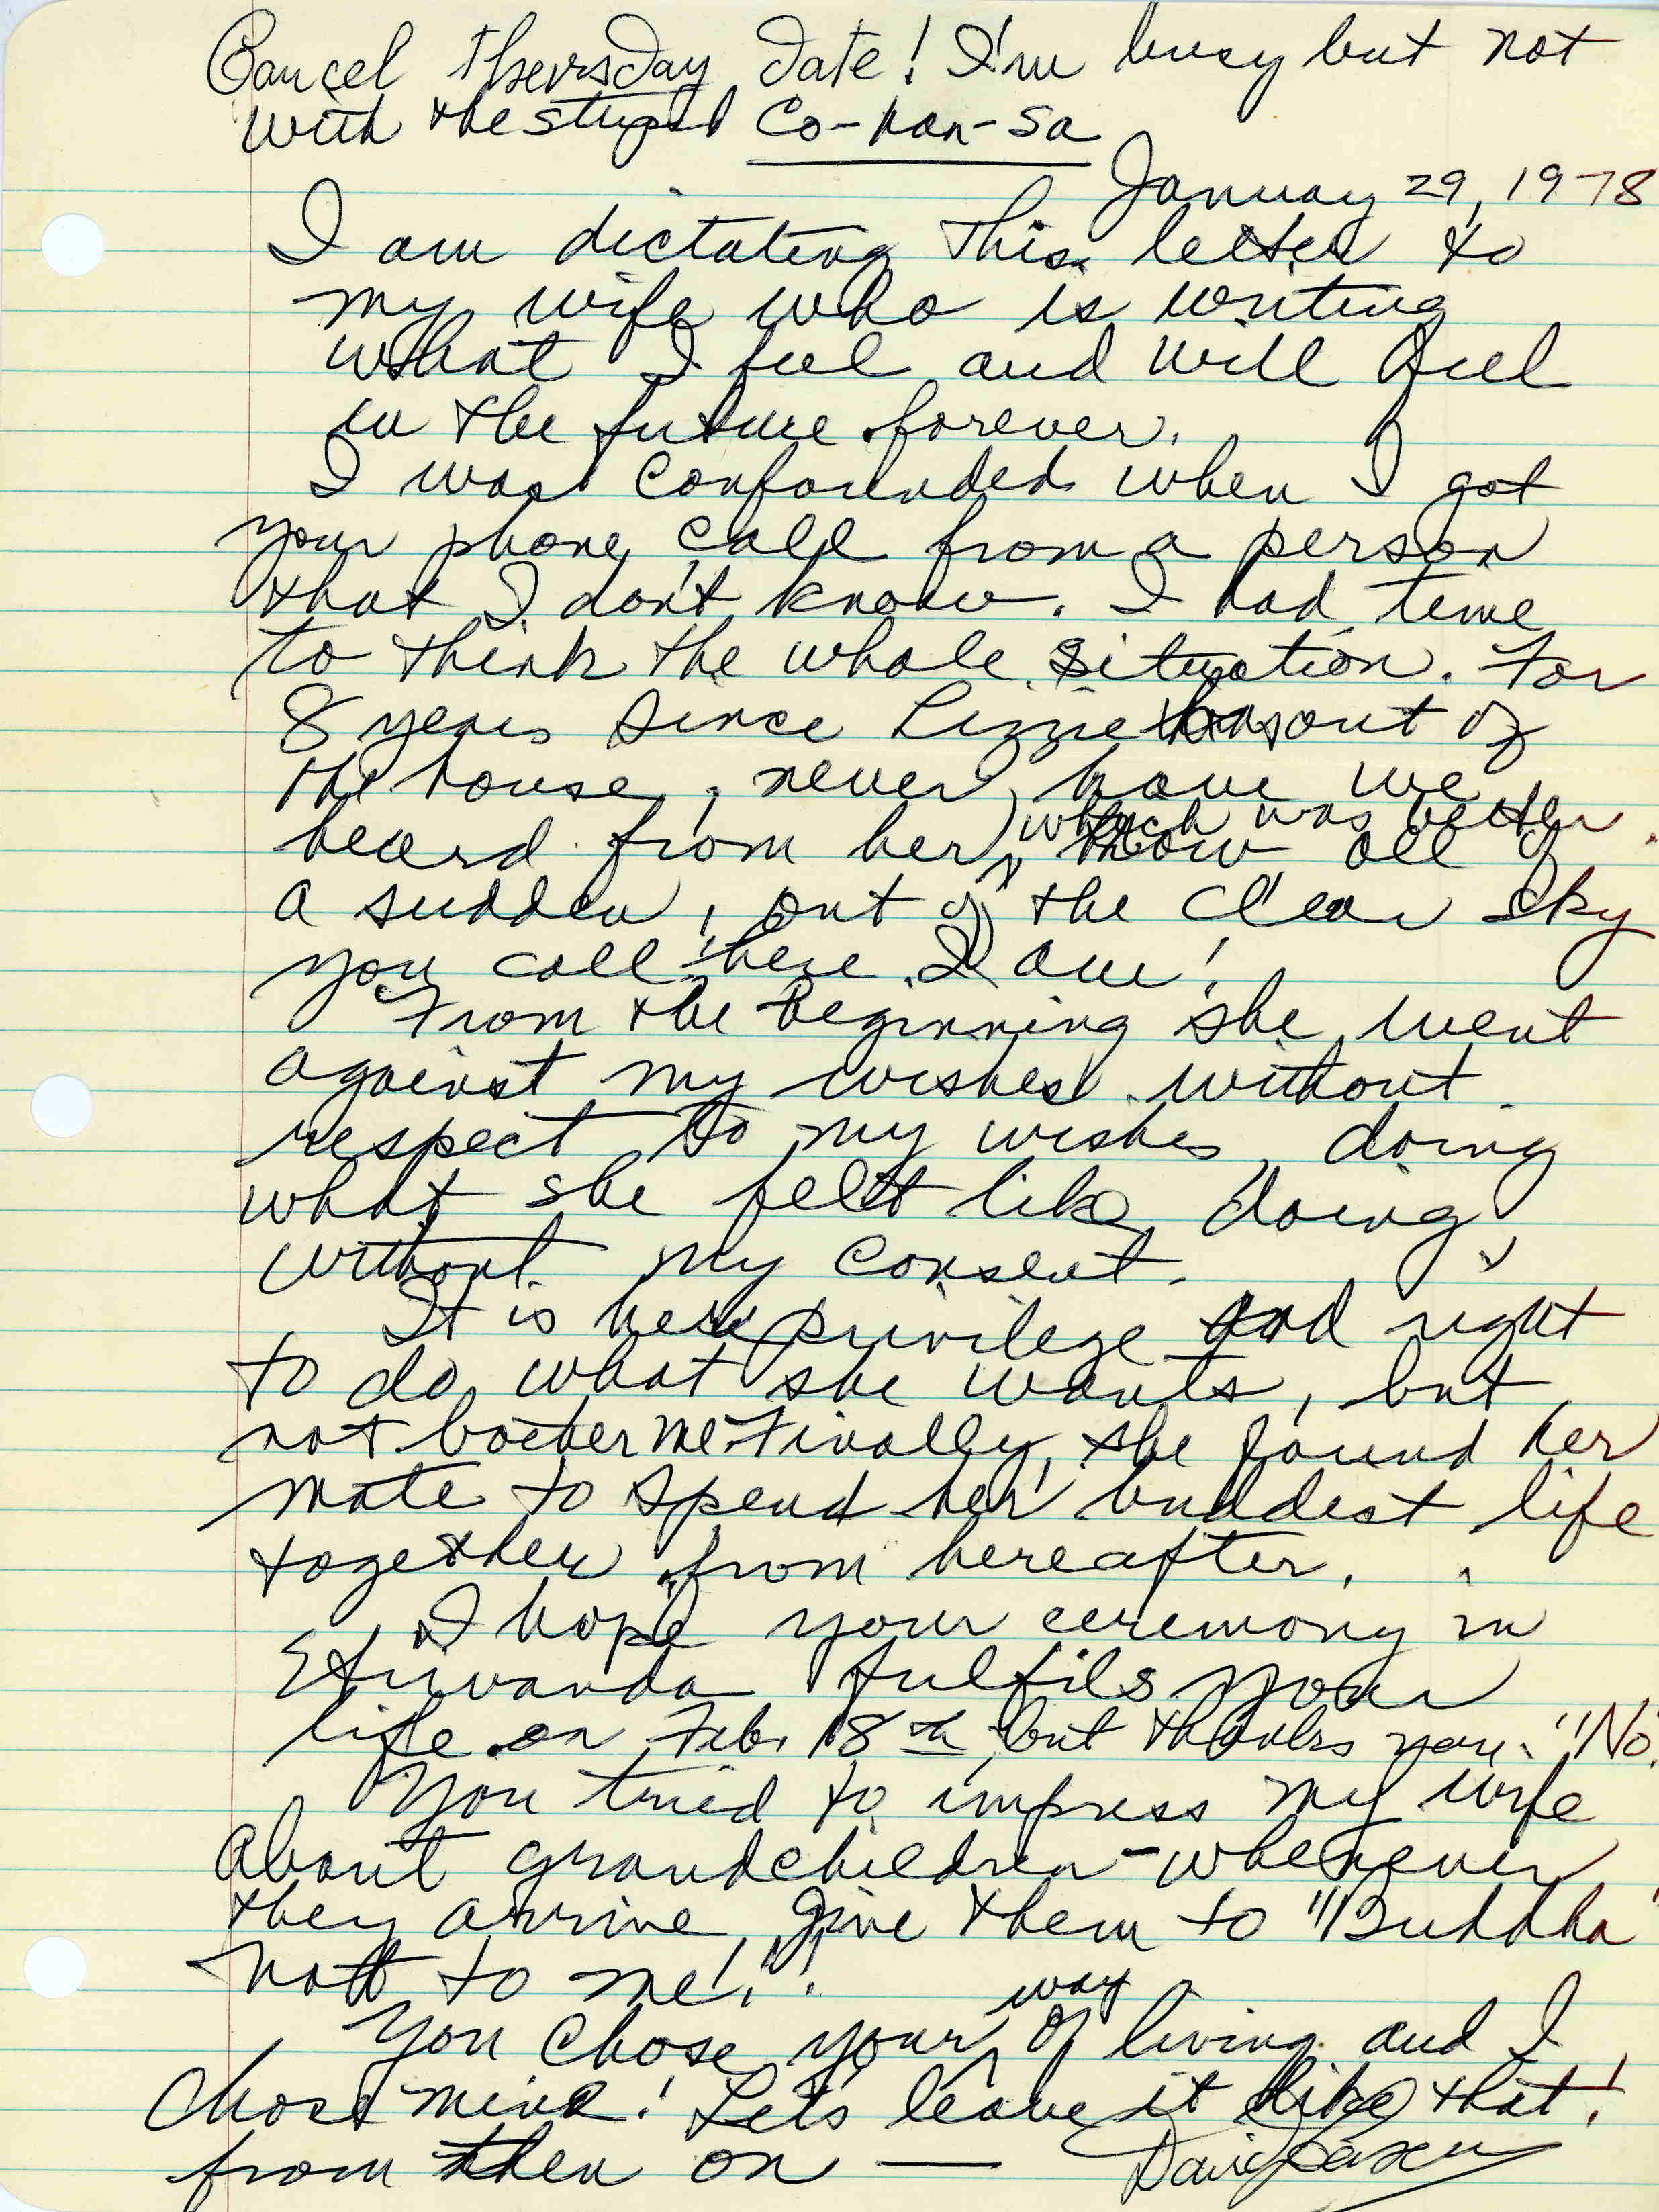 Cancel thursday date! I'm busy but not
with the stupid Co-han-sa
January 29, 1978
I am dictating this letter to
my wife who is writing
what I feel and will feel
in the future forever.
I was confounded when I got
your phone call from a person
that I don't know. I had time
to think the whole situation. For
8 years since Lizzie was out of
the house, never have we
heard from her, which was better.
Now all of
a sudden, out of the clear sky
you call "here I am!
From the beginning she went
against my wishes without
respect to my wishes, doing
what she felt like doing
without my consent.
It is her privilege and right
to do what she wants, but
not bother me. Finally, she found her
mate to spend her buddest life
together from hereafter.
I hope your ceremony in
Etiwanda fulfils your
life on Feb. 18th, but thanks you. "No.
You tried to impress my wife
about grandchildren - whenever
they arrive, give them to "Buddha"
not to me!"!
You chose your way of living and I
chose mine! Let's leave it like that!
from then on —
David